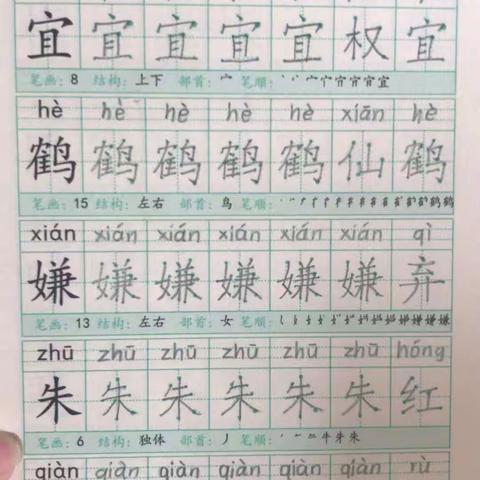 宜 宜 宜 宜 宜 权 宜
笔画：8 结构：上下 部首：宀 笔顺：
hè hè hè hè hè xiān hè
鹤 鹤 鹤 鹤 鹤 仙 鹤
笔画：15 结构：左右 部首：鸟 笔顺：
xián xián xián xián xián xián qì
嫌 嫌 嫌 嫌 嫌 嫌 弃
笔画：13 结构：左右 部首：女 笔顺：
zhū zhū zhū zhū zhū zhū hóng
朱 朱 朱 朱 朱 朱 红
笔画：6 结构：独体 部首：丿 笔顺：
qiàn qiàn qiàn qiàn qiàn qiàn rù